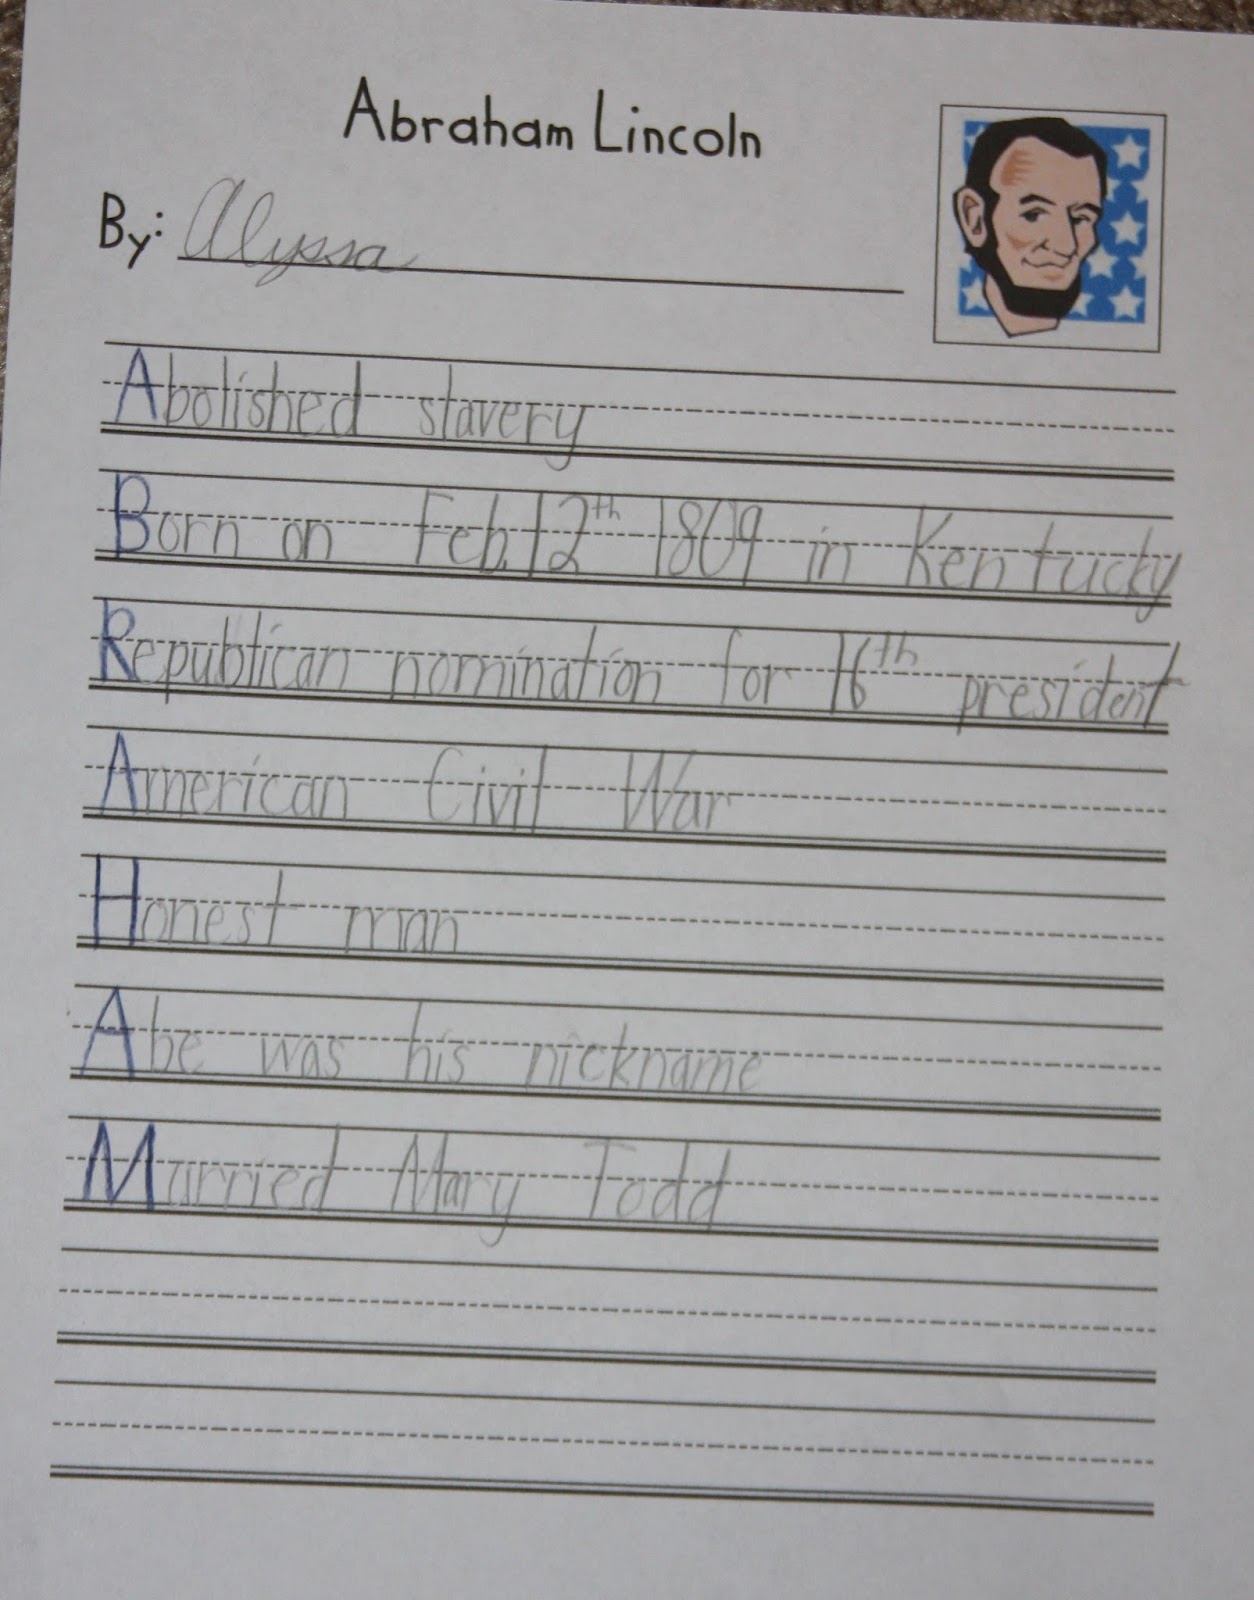 Abraham Lincoln
By: Alyssa
Abolished slavery
Born on Feb. 12th 1809 in Kentucky
Republican nomination for 16th president
American Civil War
Honest man
Abe was his nickname
Married Mary Todd